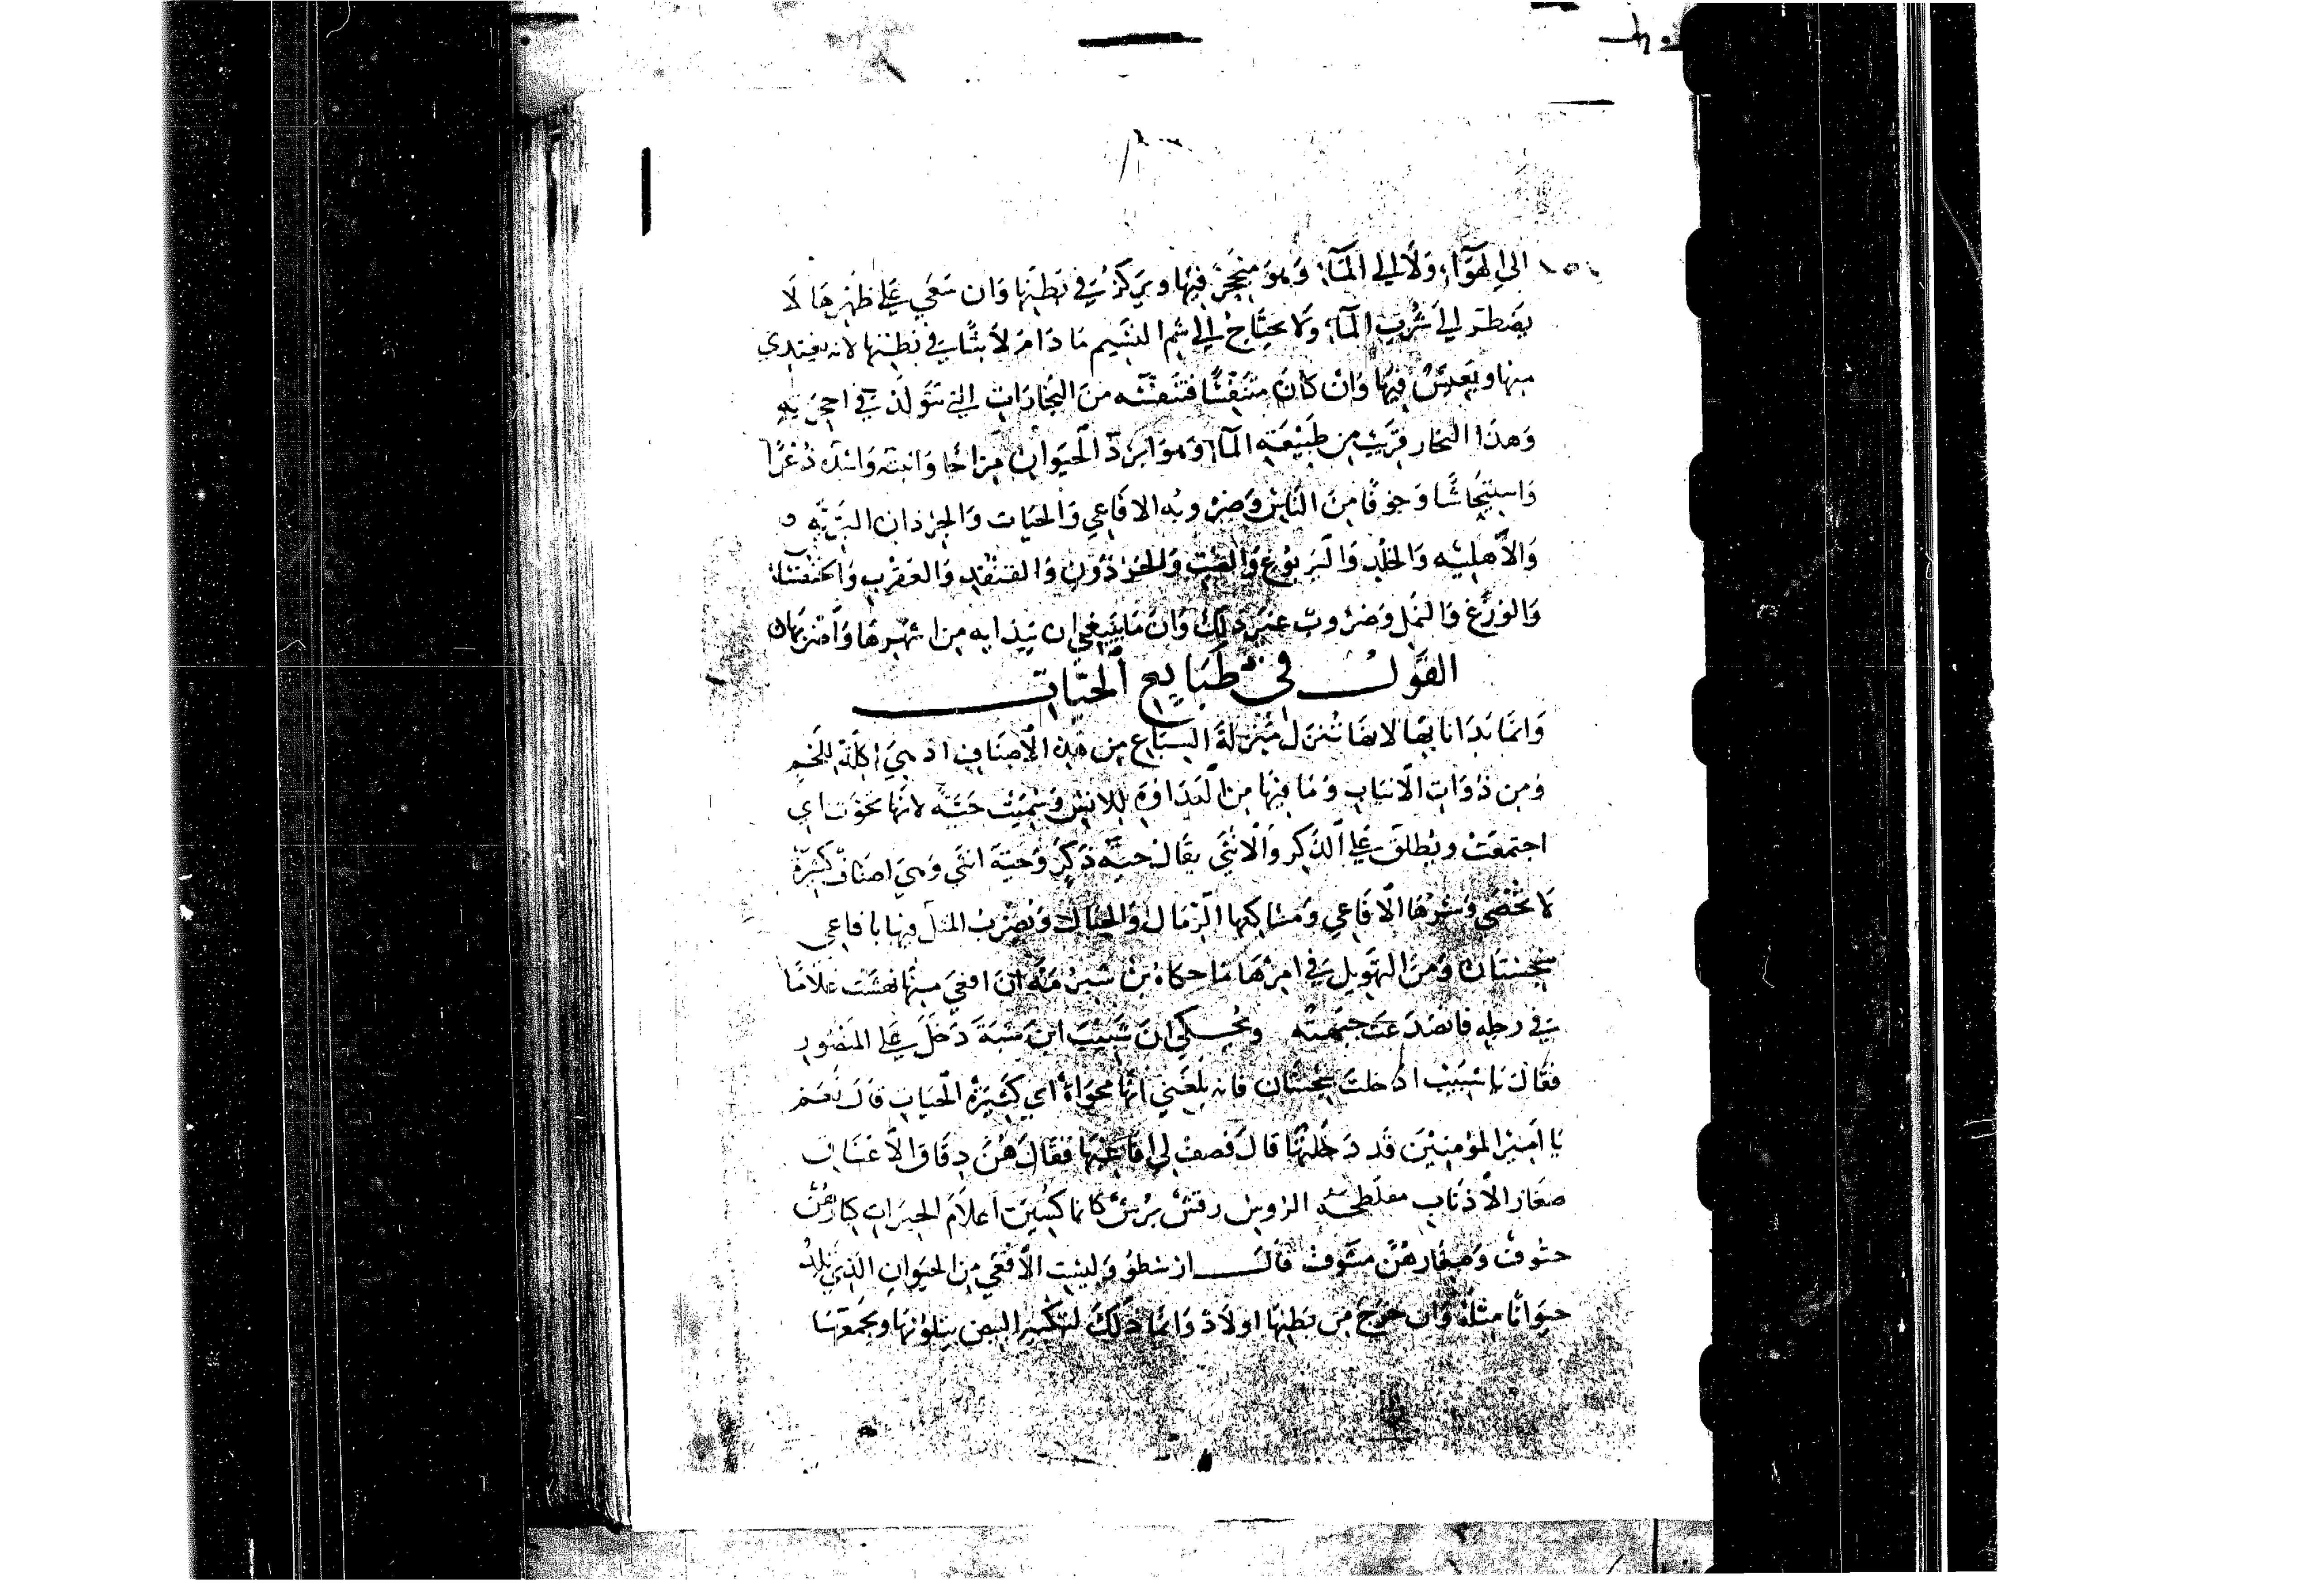 الى الهوآء ولا الى المآء وهو منجحر فيها ويركز في بطنها وان سعى على ظهرها لا
يضطر الى شرب المآء ولا يحتاج الى شم النسيم ما دام لابثا في بطنها لانه يغتدي
منها ويعيش فيها وان كان متنفسا فتنفسه من البخارات التي تتولد في احجريه
وهذا البخار قريب من طبيعته المآء وهو ابرد الحيوان مزاجا واشده ذعرا
واستيحاشا وخوفا من الناس وضروبه الافاعي والحيات والجرذان البرية و
والاهلية والخلد واليربوع والضب والحرذون والقنفد والعقرب والخنفسا
والوزغ والنمل وضروب غير ذلك وان ما ينبغي ان نبدا به من اشهرها واضربها
القول في طبايع الحيات
وانما بدانا بها لانها تنزل منزلة السباع من هذه الاصناف اذ هي اكلة اللحم
ومن ذوات الانياب وما فيها من العداوة للانس وسميت حية لانها تحوت اي
اجتمعت ويطلق على الذكر والانثى يقال حية ذكر وحية انثى وهي اصناف كثيرة
لا تحصى وشرها الافاعي ومساكنها الرمال والجبال ويضرب المثل فيها بافاعي
سجستان ومن التهويل في امرها ما حكاه بن شبرمة ان افعى منها نهشت غلاما
في رجله فانصدعت جبهته ويحكى ان شبيب ابن شبة دخل على المنصور
فقال يا شبيب ادخلت سجستان فانه بلغني انها محواة اي كثيرة الحيات قال نعم
يا امير المؤمنين قد دخلتها قال فصف لي افاعيها فقال هن دقاق الاعناق
صغار الاذناب مفلطحة الروس رقش برش كانما كسين اعلام الحبرات كبارهن
حتوف وصغارهن سيوف قال ارسطو وليست الافعى من الحيوان الذي يلد
حيوانا مثله وان خرج من بطنها اولاد وانما ذلك لتكسير البيض ببطونها وتجمعها